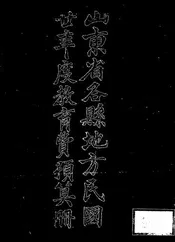 山東省各縣地方民國
廿年度教育費預算冊